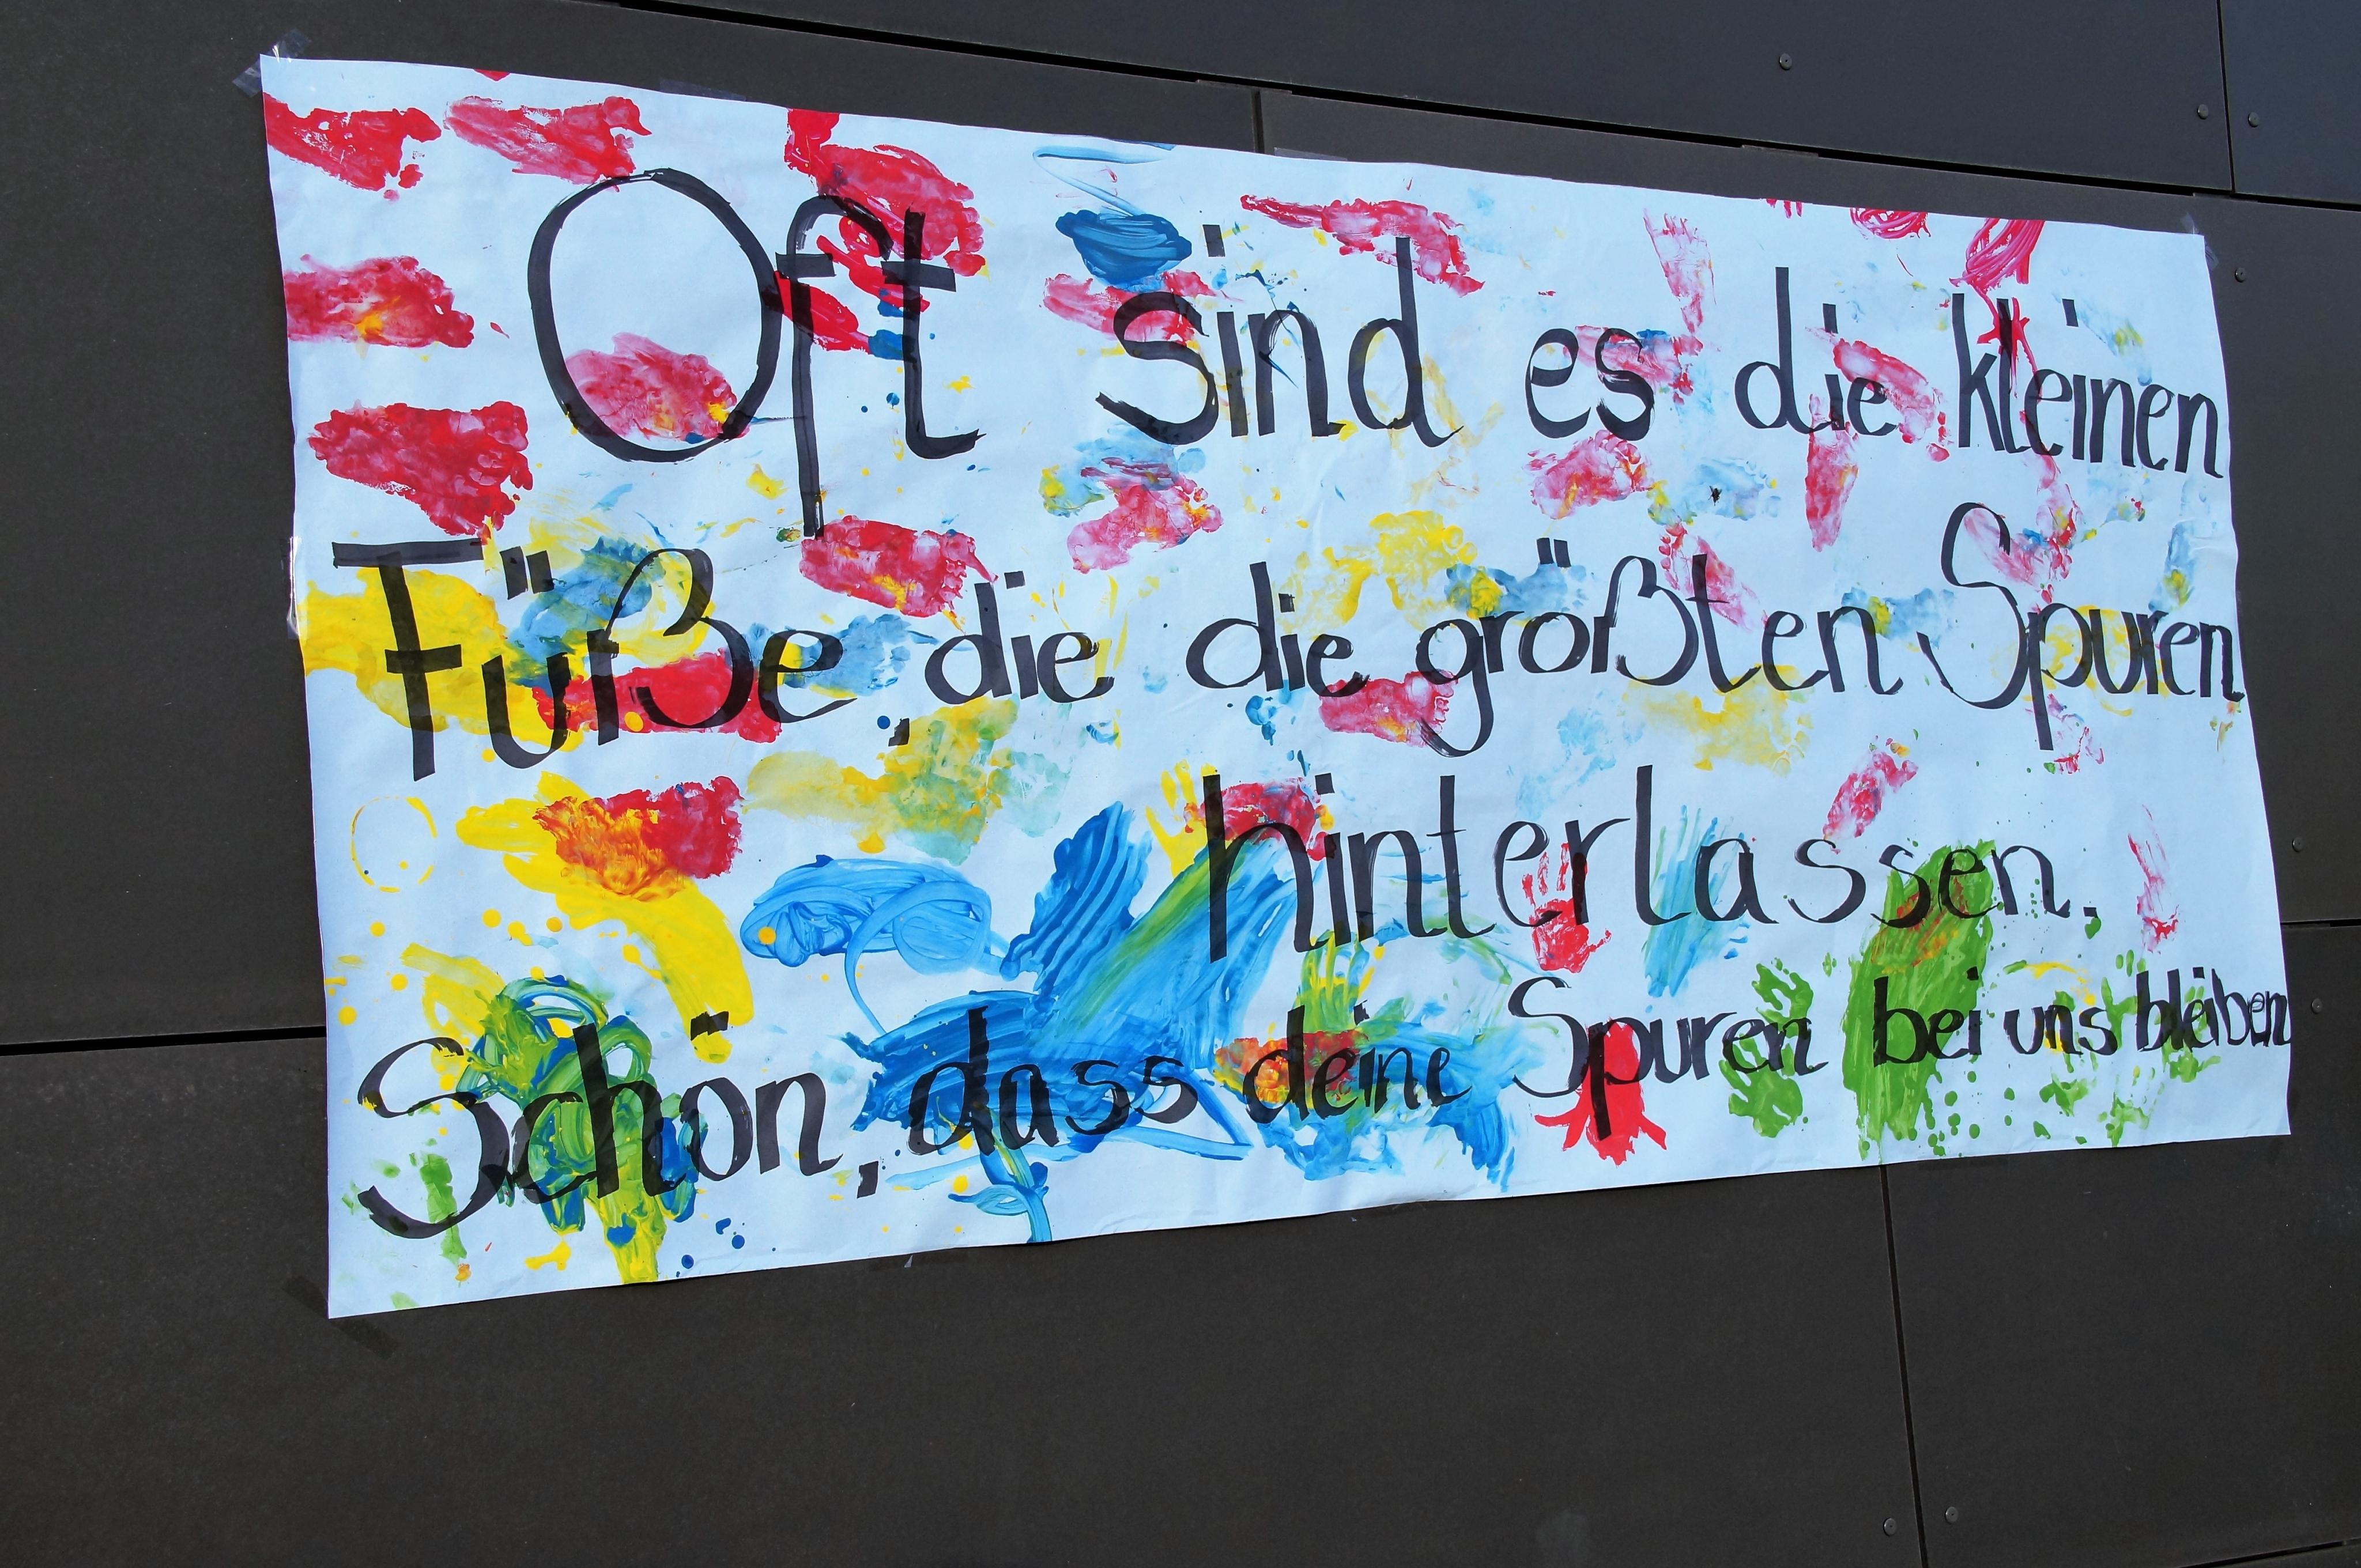 Oft sind es die kleinen
Füße, die die größten Spuren
hinterlassen.
Schön, dass deine Spuren bei uns bleiben